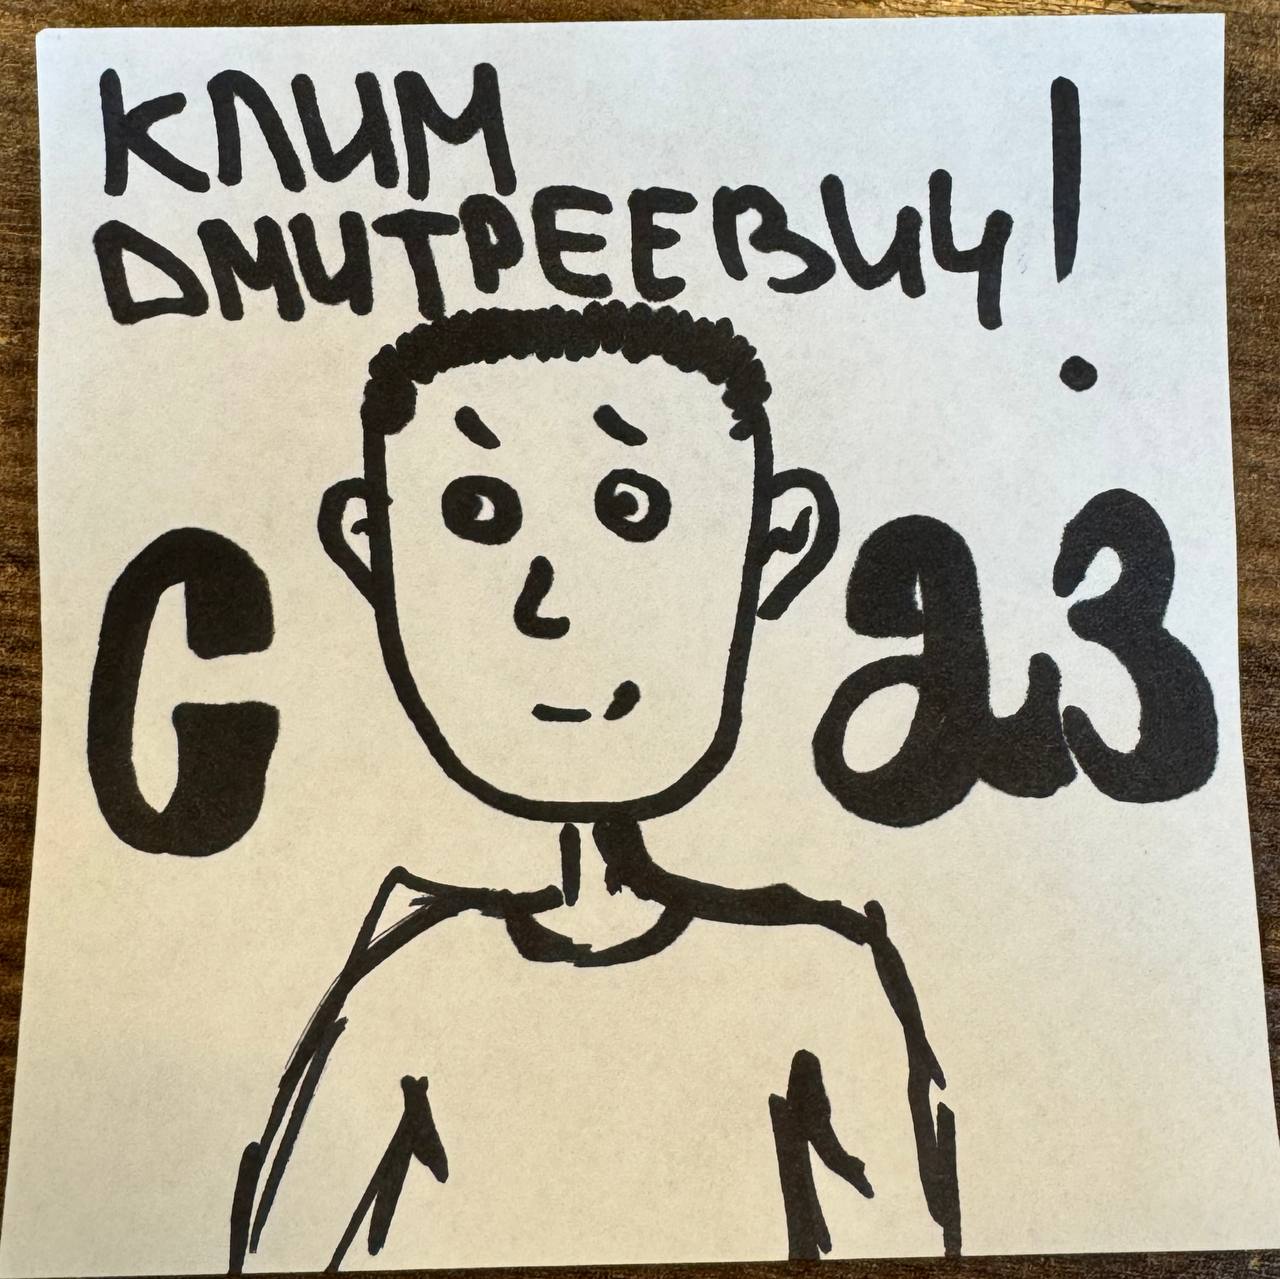 КЛИМ
ДМИТРЕЕВИЧ!
С 23